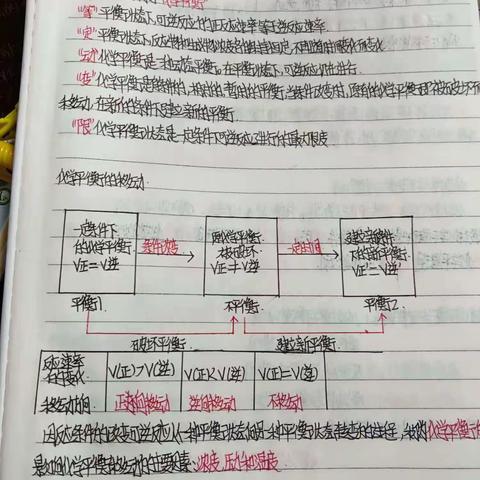 "等"平衡状态下,可逆反应的正反应速率等于逆反应速率
"定"平衡状态下,反应物和生成物浓度各自保持恒定,不再随时间变化而变化
"动"化学平衡是一种动态平衡。在平衡状态下,可逆反应仍在进行
"变"化学平衡是有条件的、相对的、暂时的平衡,当条件改变时,原有的化学平衡
移动,在新的条件下建立新的平衡.
"限"化学平衡状态是一定条件下可逆反应进行的最大限度
化学平衡的移动.
一定条件下的化学平衡 V正=V逆
条件改变
原化学平衡被破坏 V正≠V逆
一定时间
建立新条件下的新平衡 V正'=V逆'
平衡1.
不平衡.
平衡2.
破坏平衡.
建立新平衡.
反应速率的变化 V(正)>V(逆) V(正)<V(逆) V(正)=V(逆)
移动方向 正方向移动 逆向移动 不移动
因反应条件的改变,可逆反应从一种平衡状态向另一种平衡状态转变的过程,称为化学平衡的
影响化学平衡移动的主要因素:浓度、压强和温度